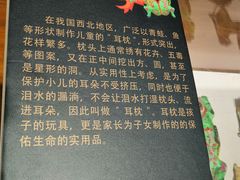 在我国西北地区，广泛以青蛙、鱼
等形状制作儿童的“耳枕”，形式突出，
花样繁多。枕头上通常绣有花卉、五毒
等图案，又在正中间挖出方、圆，甚至
是星形的洞。从实用性上考虑，是为了
保护小儿的耳朵不受挤压，同时也便于
泪水的漏淌，不会让泪水打湿枕头、流
进耳朵，因此叫做“耳枕”。耳枕是孩
子的玩具，更是家长为子女制作的的保
佑生命的实用品。